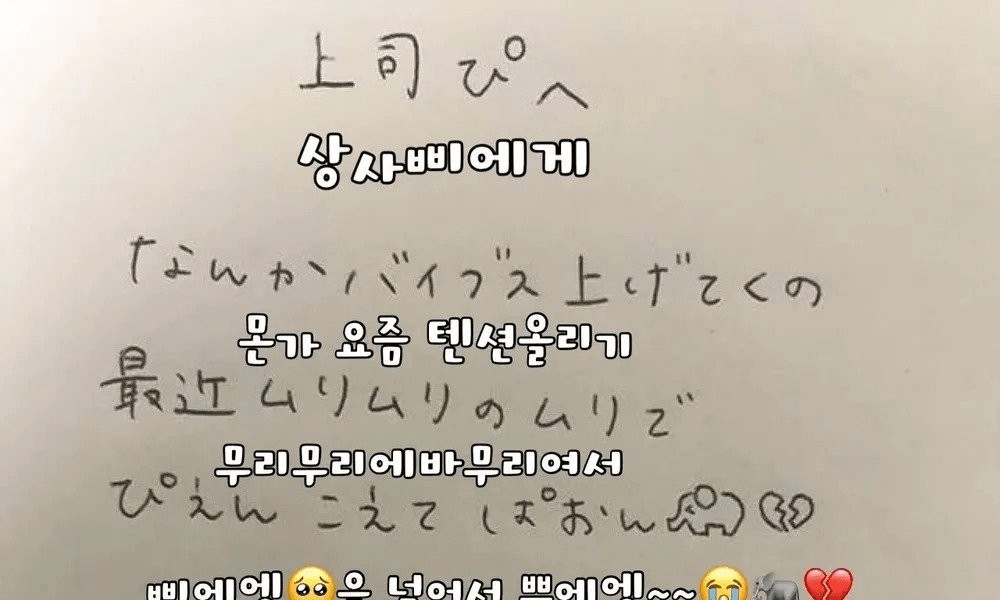 上司ぴへ
상사삐에게
なんかバイブス上げてくの
몬가 요즘 텐션올리기
最近ムリムリのムリで
무리무리에바무리여서
ぴえんこえてぱおん
삐에엥🥺을 넘어서